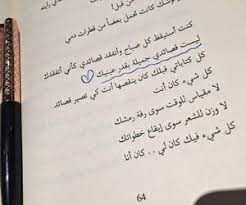 من قبل!
كانت تحمل بعضاً من قطرات دمي
كنت أستيقظ كل صباح وأتفقد قصائدي كأني أتفقدك
ليست قصائدي جميلة بقدر عينيك
كل كتاباتي قبلك كان ينقصها أنت كي تصير قصائد
كل شيء كان أنت
لا مقياس للوقت سوى رفة رمشك
ولا وزن للشعر سوى إيقاع خطواتك
كل شيء فيك كان لي .. كان أنا
64